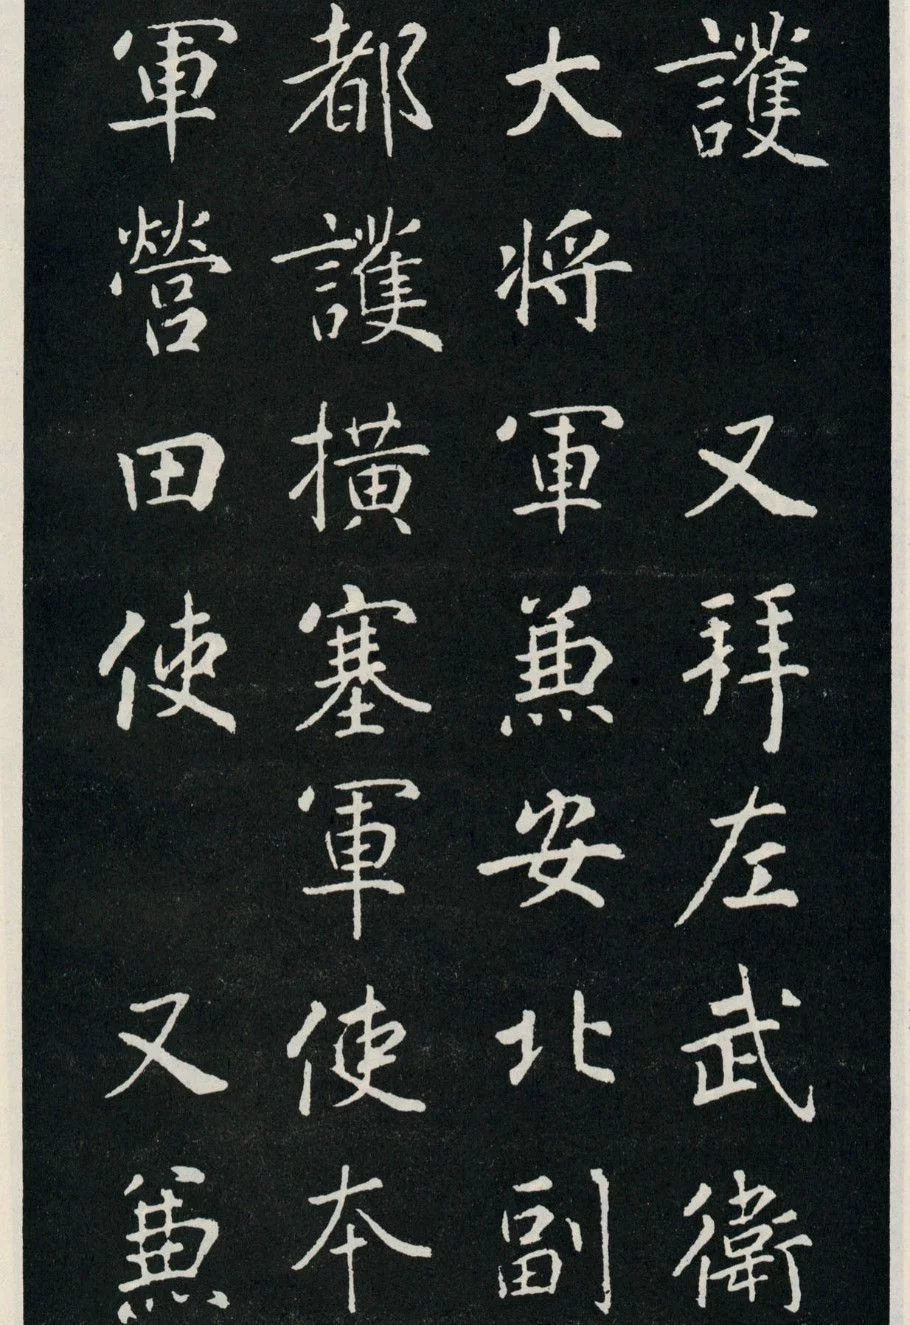 護 又拜左武衛
大將軍兼安北副
都護横塞軍使本
軍營田使 又兼